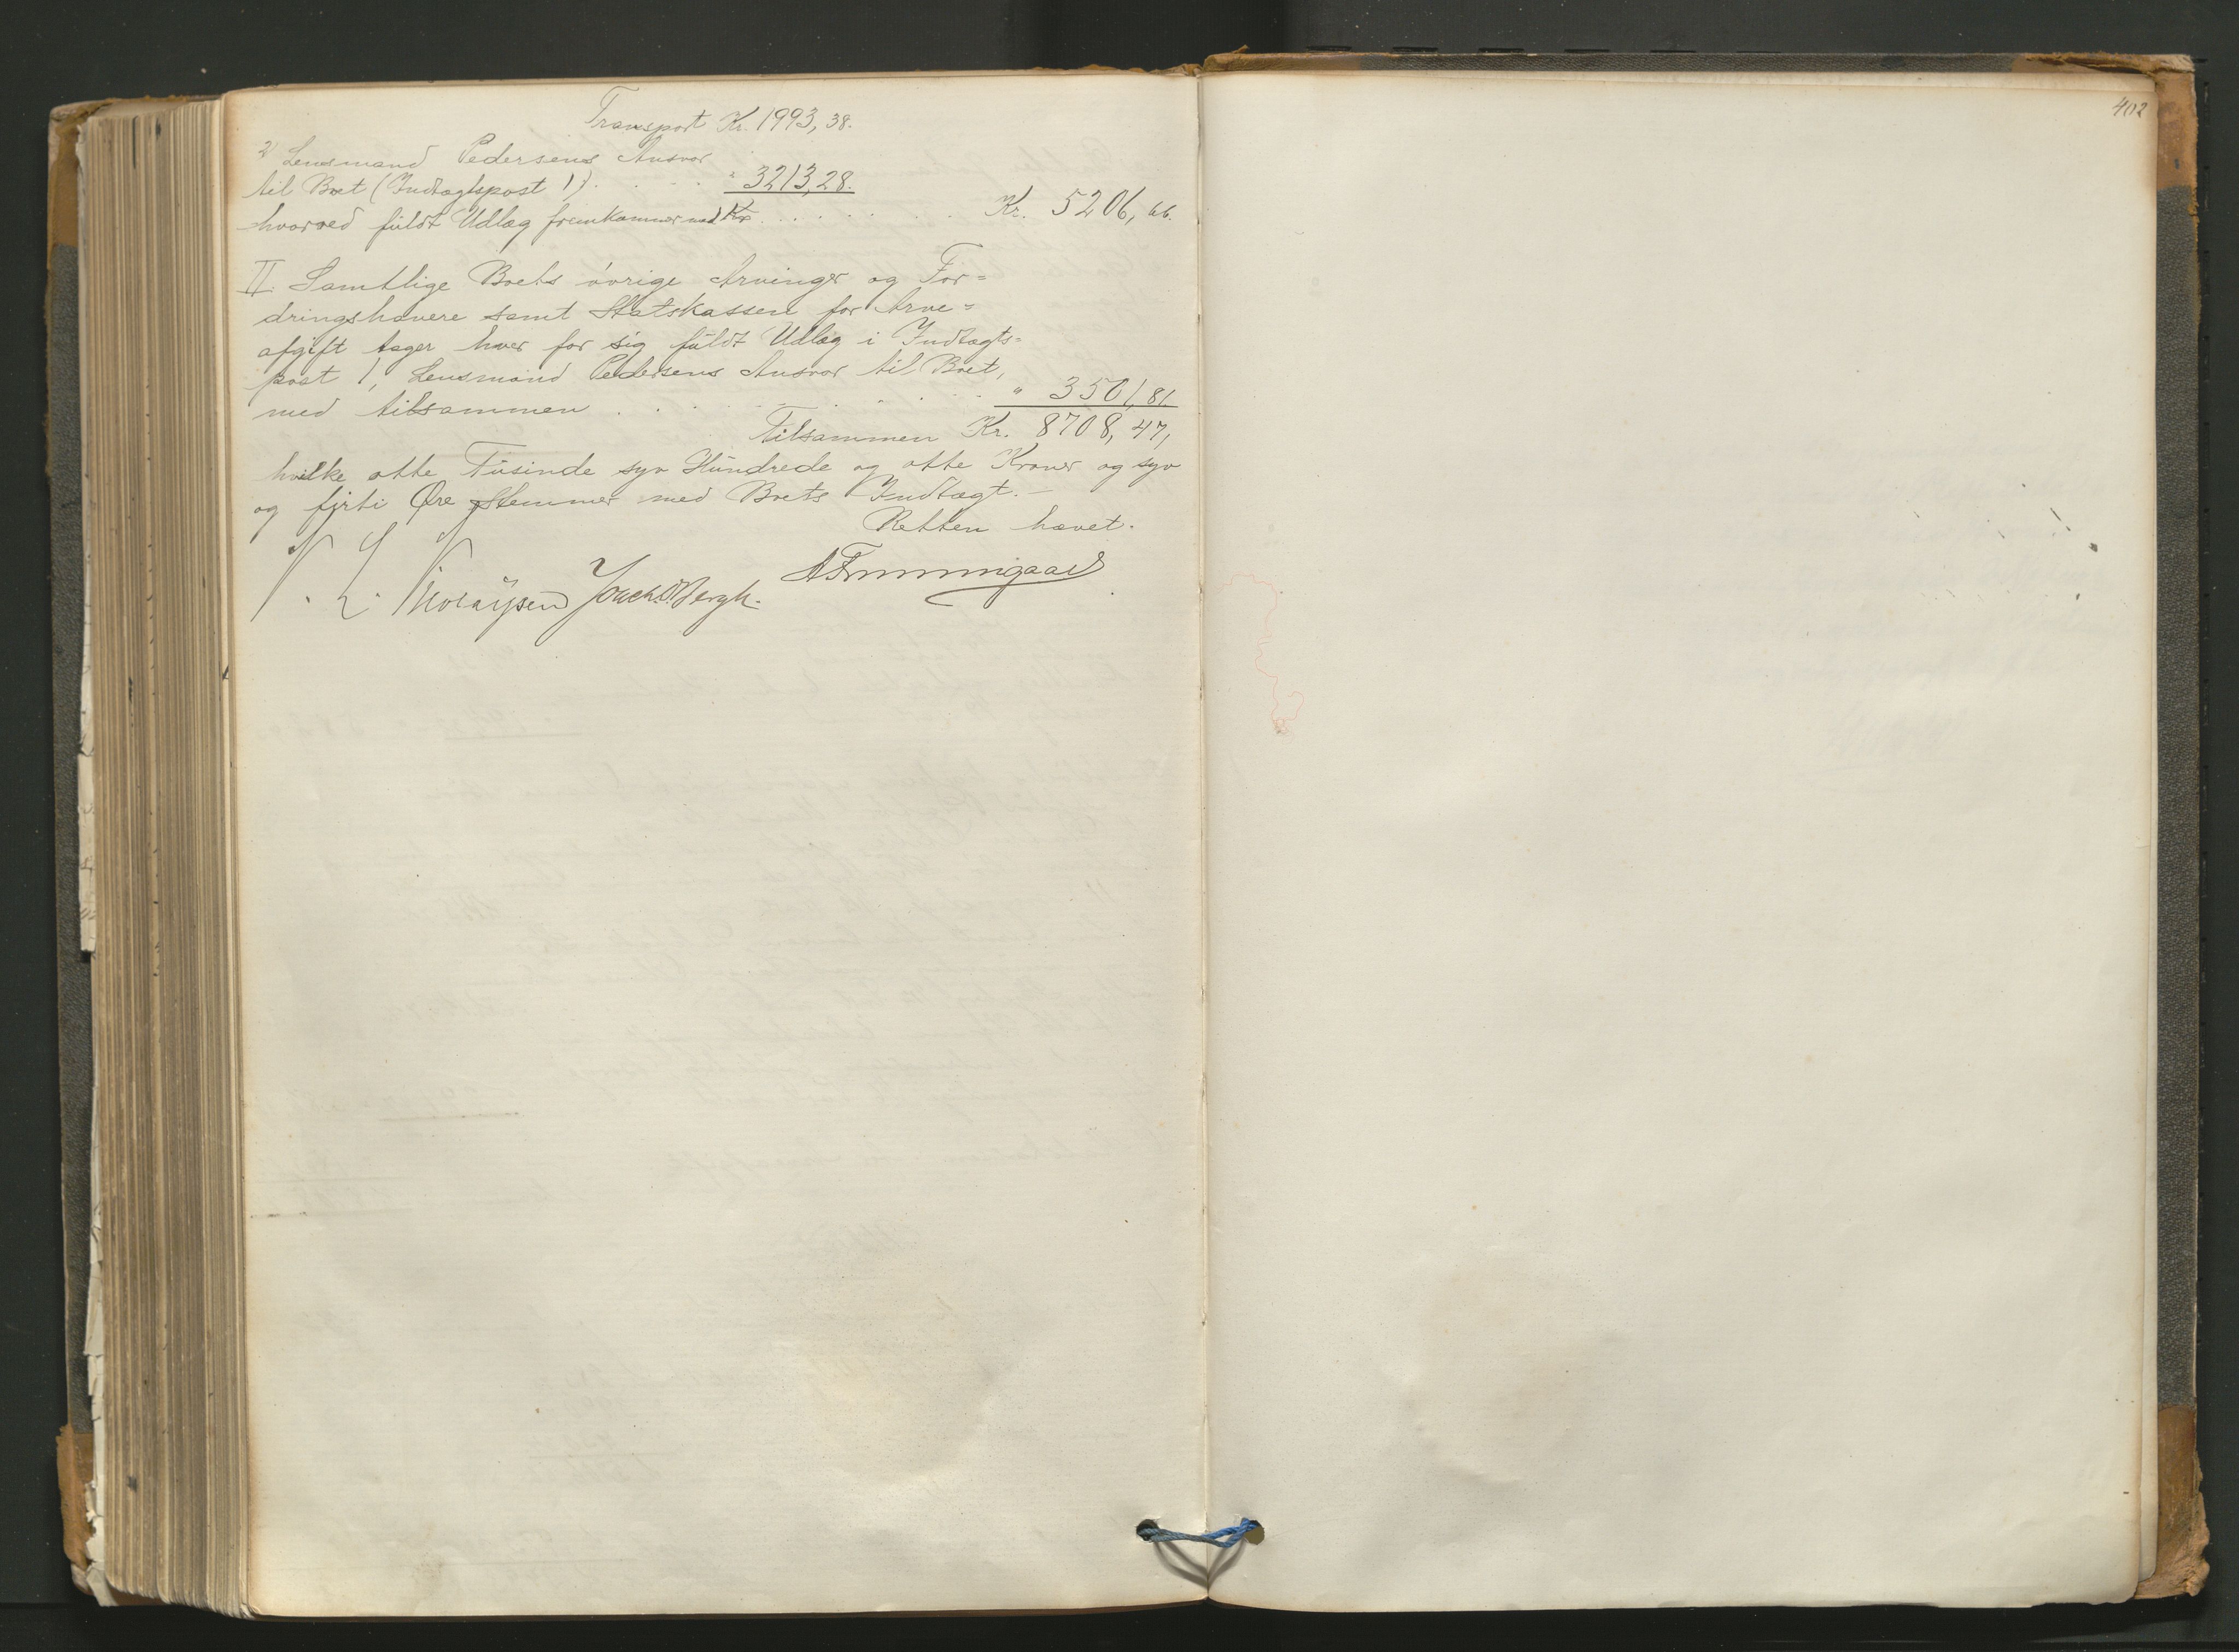 Transport Kr. 1993, 38.
2) Lensmand Pedersens Ansvar
til Boet (Indtægtspost 1) . . . . " 3213,28.
hvorved fuldt Udlæg fremkommer med Kr. . . . . . . . Kr. 5206, 66.
II. Samtlige Boets øvrige Arvinger og For=
dringshavere samt Statskassen for Arve=
afgift tager hver for sig fuldt Udlæg i Indtægts=
post 1, Lensmand Pedersens Ansvar til Boet,
med tilsammen . . . . . . . . . " 3501, 81.
Tilsammen Kr. 8708, 47,
hvilke otte Tusinde syv Hundrede og otte Kroner og syv
og firti Øre stemmer med Boets Indtægt. —
Retten hævet.
Joach. Bergh.
402